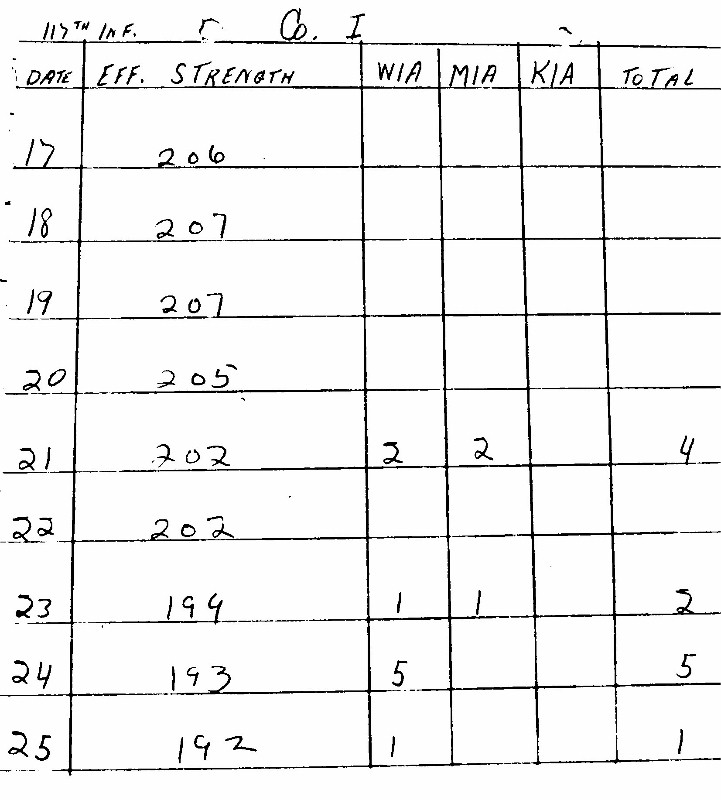 117TH INF. Co. I
DATE EFF. STRENGTH WIA MIA KIA TOTAL
17 206
18 207
19 207
20 205
21 202 2 2 4
22 202
23 194 1 1 2
24 193 5 5
25 192 1 1